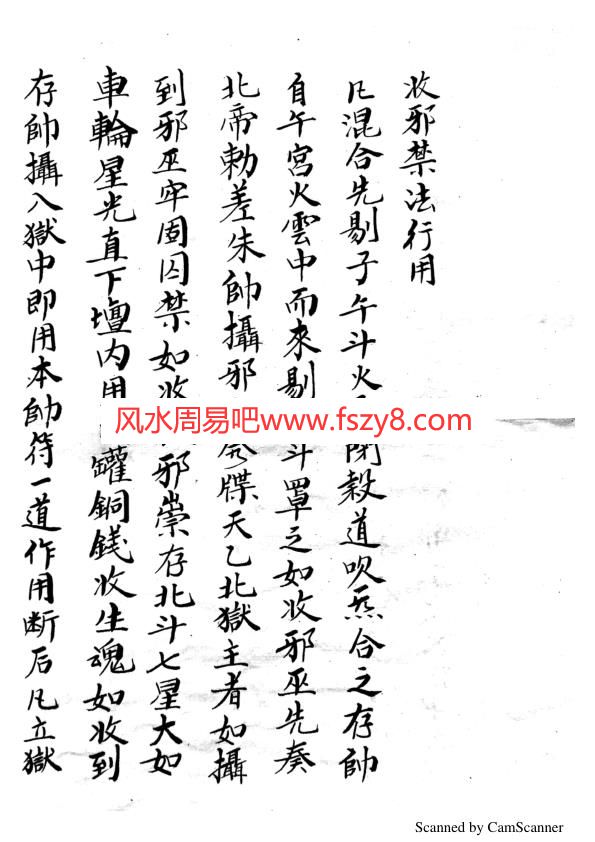 收邪禁法行用
凡混合先剔子午斗火 閉穀道呪炁合之存帥
自午宮火雲中而來剔 斗罩之如收邪巫先奏
北帝勅差朱帥攝邪 牒天乙北獄主者如攝
到邪巫牢固囚禁如收 邪祟存北斗七星大如
車輪星光直下壇内用 罐銅錢收生魂如收到
存帥攝入獄中即用本帥符一道作用断后凡立獄
风水周易吧www.fszy8.com
Scanned by CamScanner